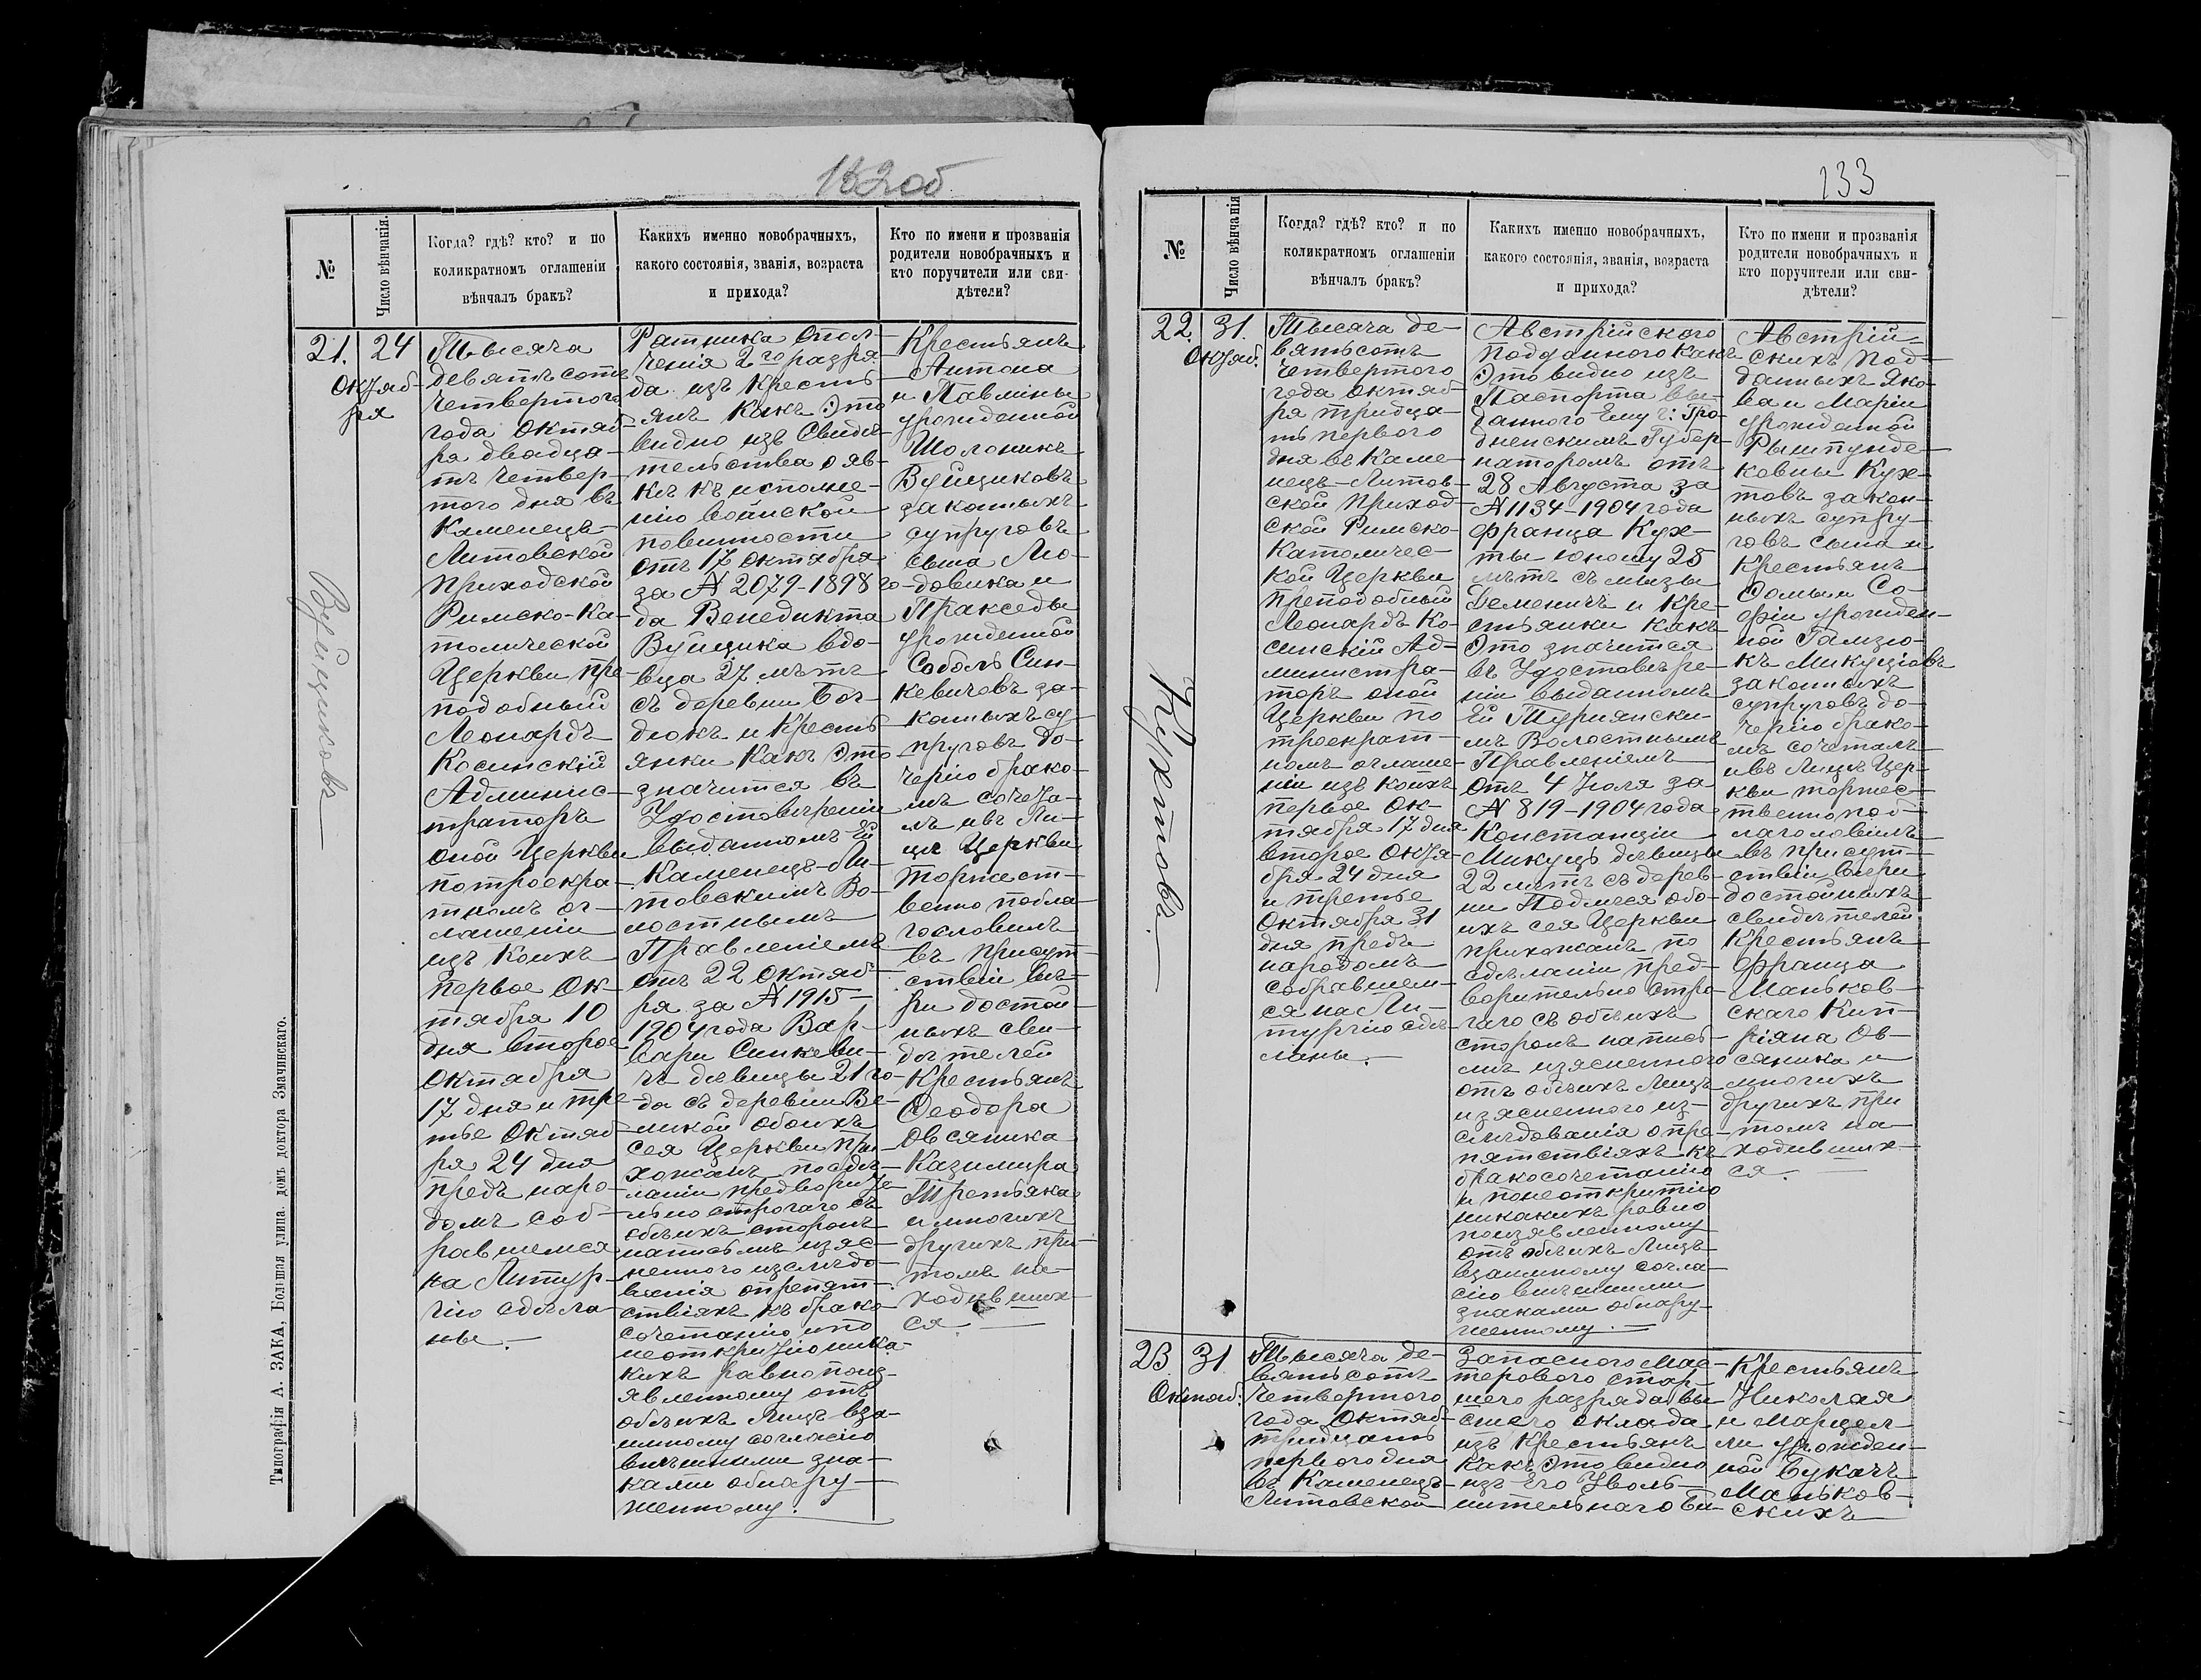 132об
№
Число вѣнчанія.
Когда? гдѣ? кто? и по
коликратномъ оглашеніи
вѣнчалъ бракъ?
Какихъ именно новобрачныхъ,
какого состоянія, званія, возраста
и прихода?
Кто по имени и прозванія
родители новобрачныхъ и
кто поручители или сви-
дѣтели?
Вуйциковъ
21.
24
Октяб-
ря
Тысяча
девятьсотъ
четвертого
года Октяб-
ря двадца-
ть четвер-
того дня въ
Каменецъ-
Литовской
приходской
Римско-Ка-
толической
Церкви пре-
подобный
Леонардъ
Косинскій
Админис-
траторъ
оной Церкви
по троекра-
тномъ ог-
лашеніи
изъ коихъ
первое Ок-
тября 10
дня второе
Октября
17 дня и тре-
тье Октяб-
ря 24 дня
предъ наро-
домъ соб-
равшемся
на Литур-
гію сдѣла-
ны.
Ратника Опол-
ченія 2го разря-
да изъ Кресть-
янъ какъ это
видно изъ Свидѣ-
тельства о яв-
кѣ къ исполне-
нію воинской
повинности
отъ 17 октября
за № 2079-1898 го-
да Венедикта
Вуйцика вдо-
вца 27 лѣтъ
съ деревни Бог-
дюкъ и Кресть-
янки какъ это
значится въ
Удостовѣреніи
выданномъ Ей
Каменецъ-Ли-
товскимъ Во-
лостнымъ
Правленіемъ
отъ 22 Октяб-
ря за № 1915-
1904 года Вар-
вари Синкеви-
чъ дѣвицы 21 го-
да съ деревни Ве-
ликой обоихъ
сея Церкви при-
хожанъ по сдѣ-
ланіи предворите-
льно строгаго съ
обѣихъ сторонъ
написьмѣ изяс-
неннаго изслѣдо-
ванія опрепят-
ствіяхъ къ брако-
сочетанію и по
неоткрытію ника-
кихъ равно поиз-
явленному отъ
обѣихъ Лицъ вза-
имному согласію
внѣшними зна-
ками обнару-
женному.
Крестьянъ
Антона
и Павлины
урожденной
Шолоникъ
Вуйциковъ
законныхъ
супруговъ
сына Лю-
довика и
Пракседы
урожденной
Соболь Син-
кевичовъ за-
конныхъ су-
пруговъ до-
черію брако-
мъ сочета-
лъ ивъ Ли-
цѣ Церкви
торжест-
венно побла-
гословилъ
въ присут-
ствіи вѣ-
ри достой-
ныхъ сви-
дѣтелей
Крестьянъ
Ѳеодора
Овсяника
Казимира
Третьяка
и многихъ
другихъ при
томъ на-
ходивших-
ся
Типографія А. ЗАКА, Большая улица. домъ доктора Змачинскаго.
133
№
Число вѣнчанія
Когда? гдѣ? кто? и по
коликратномъ оглашеніи
вѣнчалъ бракъ?
Какихъ именно новобрачныхъ,
какого состоянія, званія, возраста
и прихода?
Кто по имени и прозванія
родители новобрачныхъ и
кто поручители или сви-
дѣтели?
Кухтовъ.
22.
31.
Октяб.
Тысяча де-
вятьсотъ
четвертого
года октяб-
ря тридца-
ть первого
дня въ Каме-
нецъ-Литов-
ской приход-
ской Римско-
Католичес-
кой Церкви
преподобный
Леонардъ Ко-
синскій Ад-
министра-
торъ оной
Церкви по
троекрат-
номъ оглаше-
ніи изъ коихъ
первое Ок-
тября 17 дня
второе октя-
бря 24 дня
и третье
Октября 31
дня предъ
народомъ
собравшем-
ся на Ли-
тургію сдѣ-
ланы.
Австрійского
подданного какъ
Это видно изъ
Паспорта вы-
данного Ему г: Гро-
дненскимъ Губер-
наторомъ отъ
28 Августа за
№ 1134-1904 года
Франца Кух-
ты юношу 28
лѣтъ съ мызы
Деменичъ и Кре-
стьянки какъ
Это значится
въ Удостовѣре-
ніи выданномъ
Ей Турнянски-
мъ Волостнымъ
Правленіемъ
отъ 4 Іюля за
№ 819-1904 года
Констанціи
Микуцъ дѣвицы
22 лѣтъ съ дерев-
ни Подлѣся обо-
ихъ сея Церкви
прихожанъ по
сдѣланіи пред-
ворительно стро-
гаго съ обѣихъ
сторонъ написъ-
мѣ изясненного
отъ обѣихъ Лицъ
изясненного из-
слѣдованія опре-
пятствіяхъ къ
бракосочетанію
и понеоткритію
никакихъ равно
поизявленному
отъ обѣихъ Лицъ
взаимному согла-
сію внѣшними
знаками обнару-
женному.
Австрій-
скихъ Под-
данныхъ Яко-
ва и Маріи
урожденной
Кух-
товъ закон-
ныхъ супру-
говъ сына и
Крестьянъ
Ѳомы и Со-
фіи урожден-
ной
Микуціовъ
законныхъ
супруговъ до-
черію брако-
мъ сочеталъ
ивъ Лицѣ Цер-
кви торжес-
твенно поб-
лагословилъ
въ присут-
ствіи вѣри
достойныхъ
свидѣтелей
Крестьянъ
Франца
Маньков-
скаго Кип-
ріяна Ов-
сяника и
многихъ
другихъ при
томъ на-
ходивших-
ся.
23
31
Октяб:
Тысяча де-
вятьсотъ
четвертого
года Октяб-
тридцать
первого дня
въ Каменецъ-
Литовской
Запасного Мас-
терового стар-
шего разряда вы-
сшего оклада
изъ Крестьянъ
какъ Это видно
изъ Его Уволь-
нительнаго Би-
Крестьянъ
Николая
и Марцел-
ли урожден-
ной Букачъ
Маньков-
скихъ